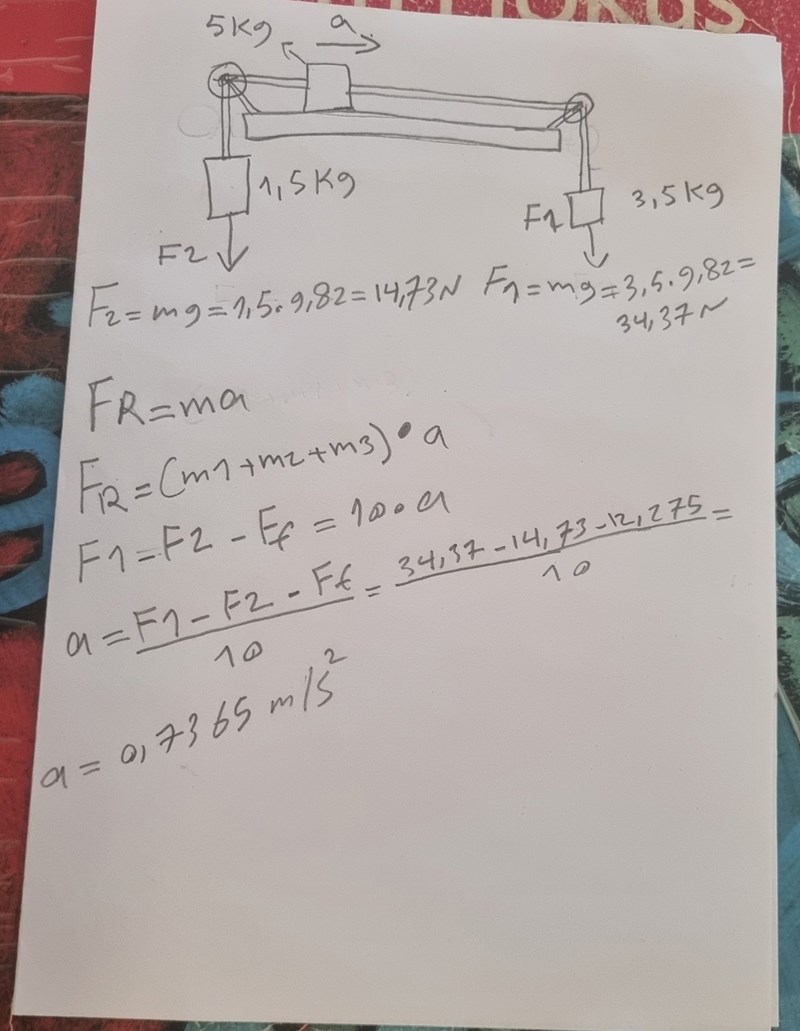 OKUS
5Kg
a
1,5Kg
3,5Kg
F1
F2
F2=mg=1,5·9,82=14,73N
F1=mg=3,5·9,82=
34,37N
FR=ma
FR=(m1+m2+m3)•a
F1=F2-Ff=10·a
a=F1-F2-Ff/10=34,37-14,73-12,275/10=
a=0,7365 m/s²